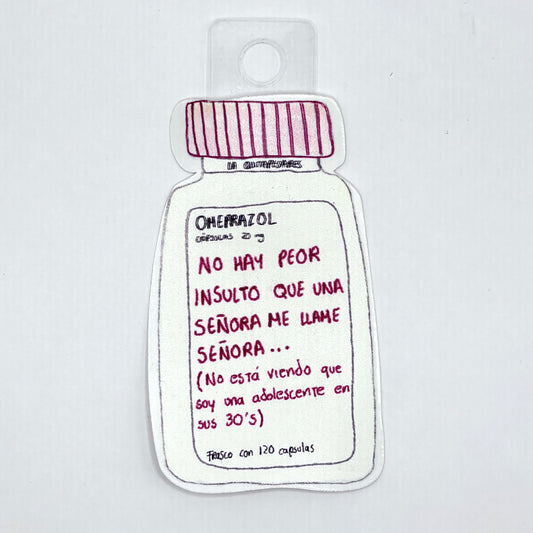 LA QUITAPESARES
OMEPRAZOL
CÁPSULAS 20 mg
NO HAY PEOR
INSULTO QUE UNA
SEÑORA ME LLAME
SEÑORA...
(No está viendo que
soy una adolescente en
sus 30's)
FRASCO con 120 capsulas